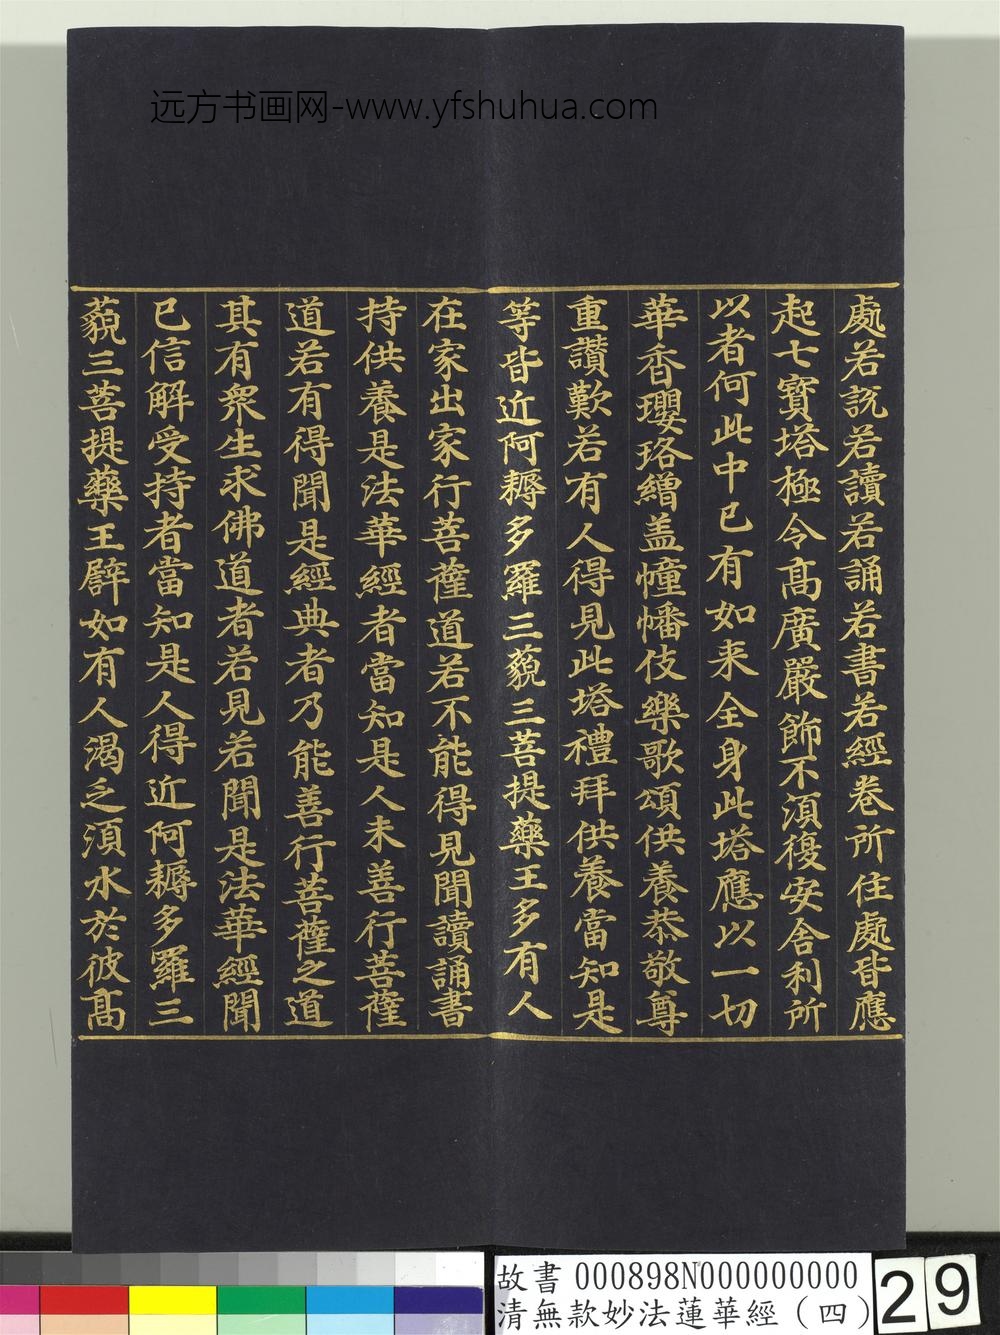 远方书画网-www.yfshuhua.com
處若說若讀若誦若書若經卷所住處皆應
起七寶塔極令高廣嚴飾不須復安舍利所
以者何此中已有如来全身此塔應以一切
華香瓔珞繒盖幢幡伎樂歌頌供養恭敬尊
重讚歎若有人得見此塔禮拜供養當知是
等皆近阿耨多羅三藐三菩提藥王多有人
在家出家行菩薩道若不能得見聞讀誦書
持供養是法華經者當知是人未善行菩薩
道若有得聞是經典者乃能善行菩薩之道
其有衆生求佛道者若見若聞是法華經聞
已信解受持者當知是人得近阿耨多羅三
藐三菩提藥王辟如有人渴乏須水於彼高
故書 000898N000000000
清無款妙法蓮華經（四）
29